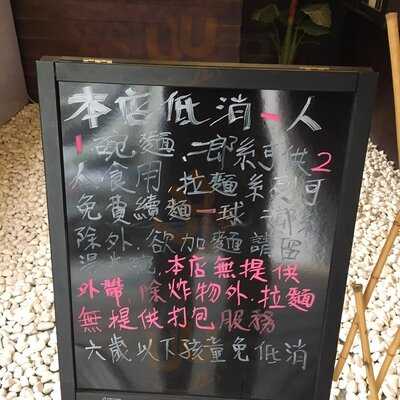 本店低消一人
1碗麵,二郎系可供2
人食用,拉麵系列可
免費續麵一球 二郎系
除外,欲加麵請留
湯於碗,本店無提供
外帶,除炸物外,拉麵
無提供打包服務
六歲以下孩童免低消